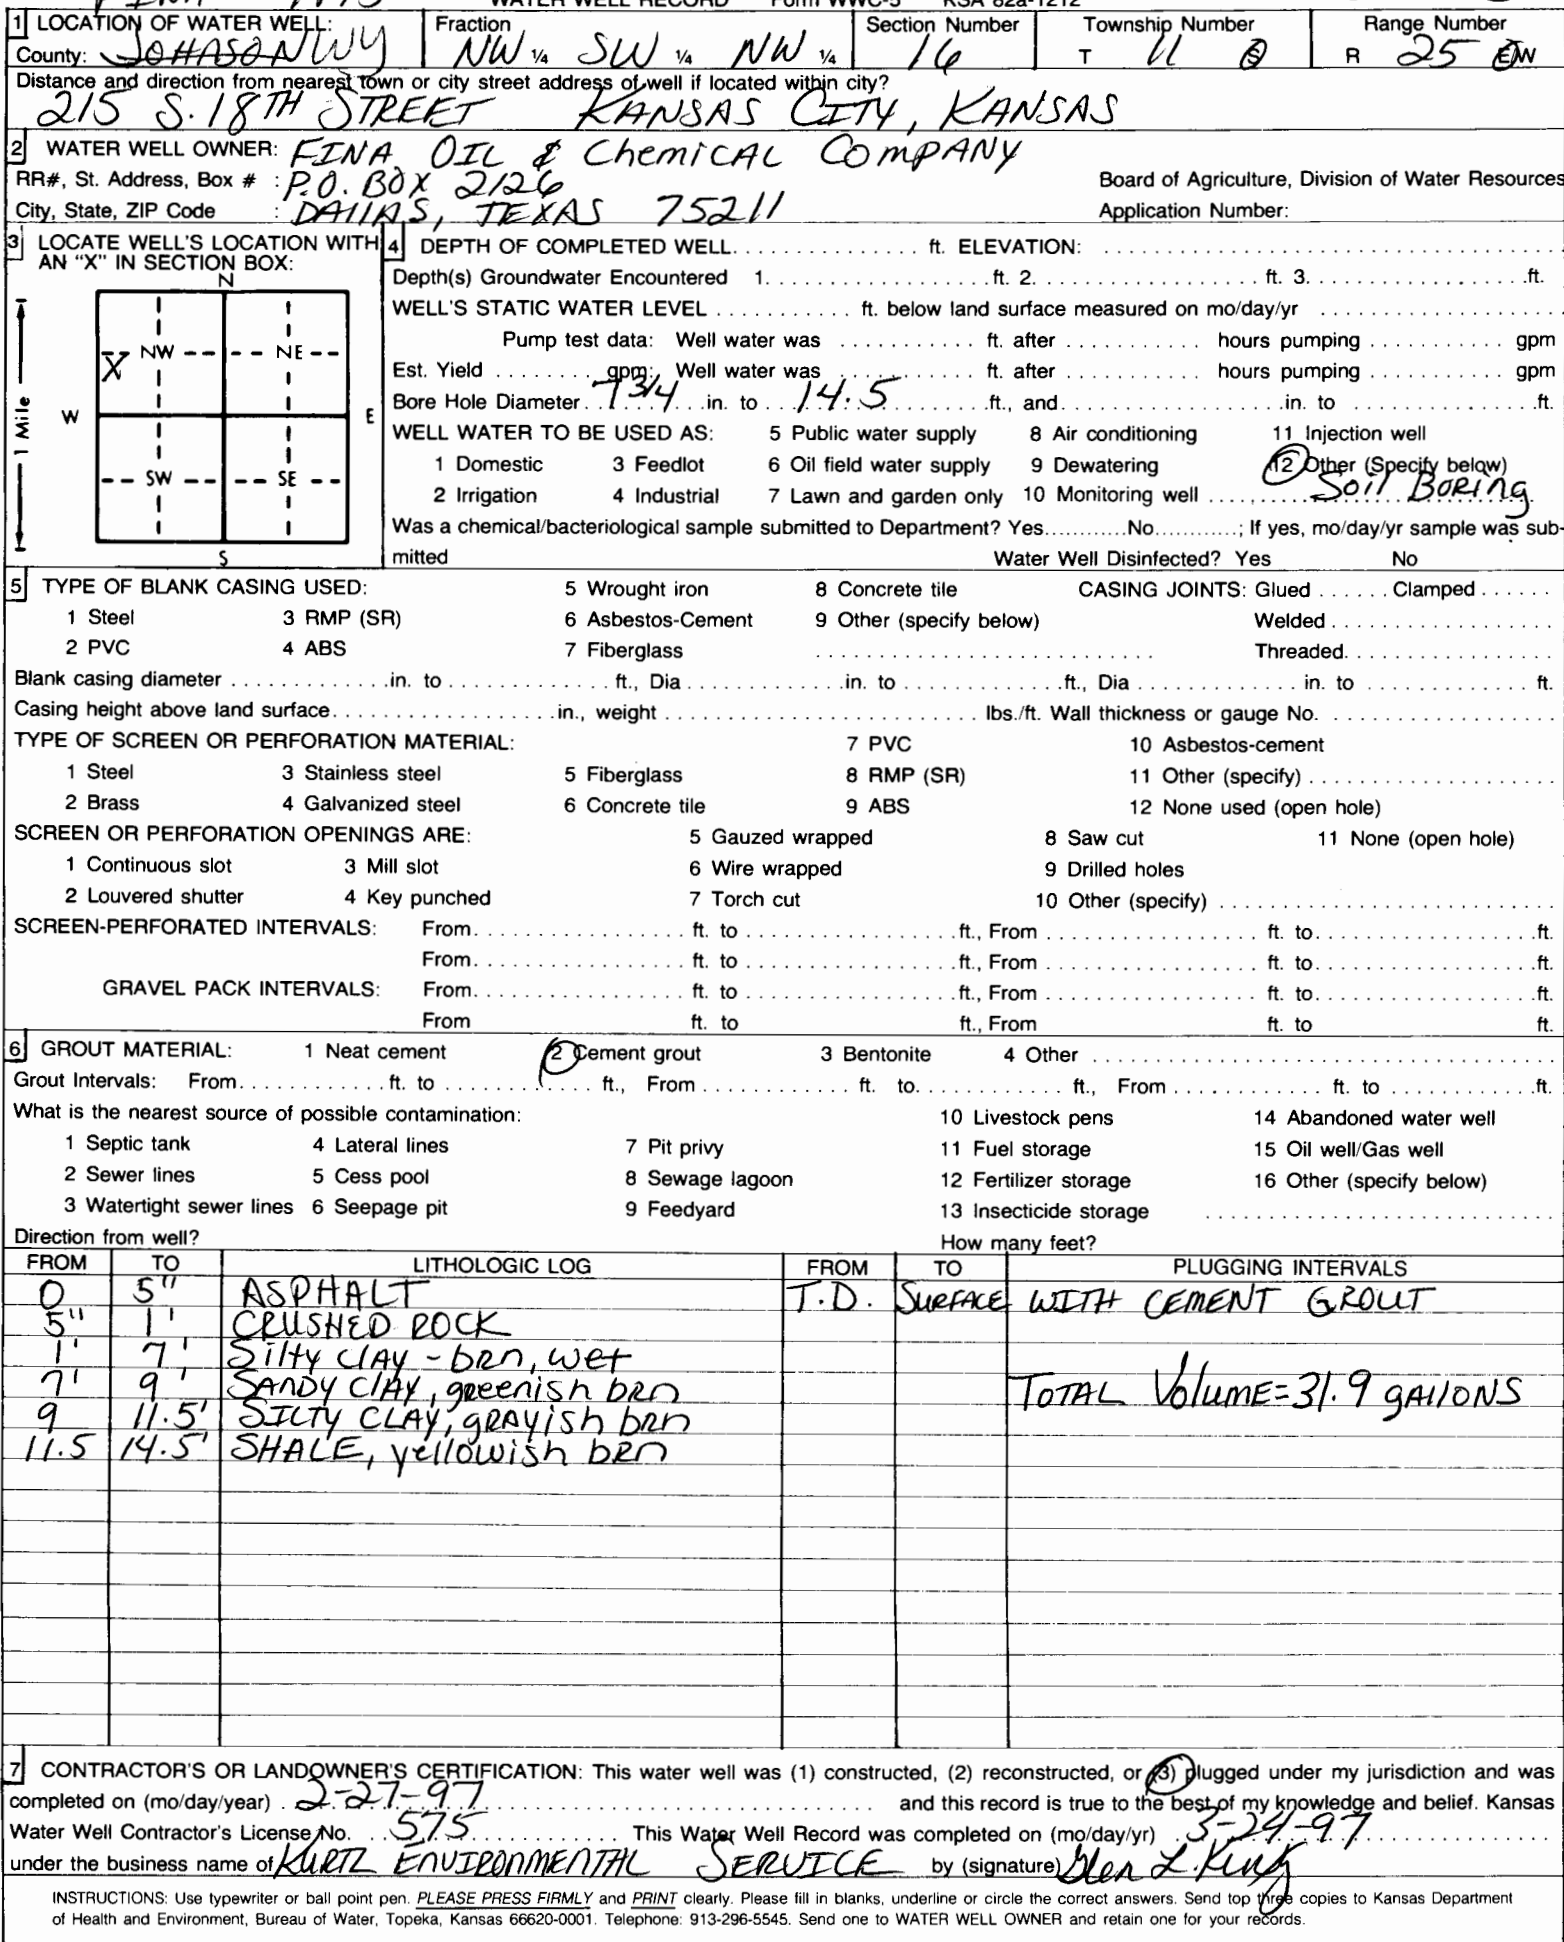 WATER WELL RECORD Form WWC-5 KSA 82a-1212
1 LOCATION OF WATER WELL: Fraction Section Number Township Number Range Number
County: JOHNSON WY NW ¼ SW ¼ NW ¼ 16 T 11 S R 25 E/W
Distance and direction from nearest town or city street address of well if located within city?
215 S. 18TH STREET KANSAS CITY, KANSAS
2 WATER WELL OWNER: FINA OIL & CHEMICAL COMPANY
RR#, St. Address, Box # : P.O. BOX 2126 Board of Agriculture, Division of Water Resources
City, State, ZIP Code : DALLAS, TEXAS 75211 Application Number:
3 LOCATE WELL'S LOCATION WITH AN "X" IN SECTION BOX:
N
NW NE
X
W E
1 Mile
SW SE
S
4 DEPTH OF COMPLETED WELL. ft. ELEVATION:
Depth(s) Groundwater Encountered 1. ft. 2. ft. 3. ft.
WELL'S STATIC WATER LEVEL ft. below land surface measured on mo/day/yr
Pump test data: Well water was ft. after hours pumping gpm
Est. Yield gpm: Well water was ft. after hours pumping gpm
Bore Hole Diameter 7 3/4 in. to 14.5 ft., and in. to ft.
WELL WATER TO BE USED AS: 5 Public water supply 8 Air conditioning 11 Injection well
1 Domestic 3 Feedlot 6 Oil field water supply 9 Dewatering 12 Other (Specify below)
2 Irrigation 4 Industrial 7 Lawn and garden only 10 Monitoring well Soil Boring
Was a chemical/bacteriological sample submitted to Department? Yes No ; If yes, mo/day/yr sample was sub-
mitted Water Well Disinfected? Yes No
5 TYPE OF BLANK CASING USED: 5 Wrought iron 8 Concrete tile CASING JOINTS: Glued Clamped
1 Steel 3 RMP (SR) 6 Asbestos-Cement 9 Other (specify below) Welded
2 PVC 4 ABS 7 Fiberglass Threaded
Blank casing diameter in. to ft., Dia in. to ft., Dia in. to ft.
Casing height above land surface in., weight lbs./ft. Wall thickness or gauge No.
TYPE OF SCREEN OR PERFORATION MATERIAL: 7 PVC 10 Asbestos-cement
1 Steel 3 Stainless steel 5 Fiberglass 8 RMP (SR) 11 Other (specify)
2 Brass 4 Galvanized steel 6 Concrete tile 9 ABS 12 None used (open hole)
SCREEN OR PERFORATION OPENINGS ARE: 5 Gauzed wrapped 8 Saw cut 11 None (open hole)
1 Continuous slot 3 Mill slot 6 Wire wrapped 9 Drilled holes
2 Louvered shutter 4 Key punched 7 Torch cut 10 Other (specify)
SCREEN-PERFORATED INTERVALS: From ft. to ft., From ft. to ft.
From ft. to ft., From ft. to ft.
GRAVEL PACK INTERVALS: From ft. to ft., From ft. to ft.
From ft. to ft., From ft. to ft.
6 GROUT MATERIAL: 1 Neat cement 2 Cement grout 3 Bentonite 4 Other
Grout Intervals: From ft. to ft., From ft. to ft., From ft. to ft.
What is the nearest source of possible contamination: 10 Livestock pens 14 Abandoned water well
1 Septic tank 4 Lateral lines 7 Pit privy 11 Fuel storage 15 Oil well/Gas well
2 Sewer lines 5 Cess pool 8 Sewage lagoon 12 Fertilizer storage 16 Other (specify below)
3 Watertight sewer lines 6 Seepage pit 9 Feedyard 13 Insecticide storage
Direction from well? How many feet?
FROM TO LITHOLOGIC LOG FROM TO PLUGGING INTERVALS
0 5" ASPHALT T.D. SURFACE WITH CEMENT GROUT
5" 1' CRUSHED ROCK
1' 7' Silty CLAY - brn, wet
7' 9' SANDY CLAY, greenish brn TOTAL Volume=31.9 gallons
9 11.5' SILTY CLAY, grayish brn
11.5 14.5' SHALE, yellowish brn
7 CONTRACTOR'S OR LANDOWNER'S CERTIFICATION: This water well was (1) constructed, (2) reconstructed, or (3) plugged under my jurisdiction and was
completed on (mo/day/year) 2-27-97 and this record is true to the best of my knowledge and belief. Kansas
Water Well Contractor's License No. 575 This Water Well Record was completed on (mo/day/yr) 3-24-97
under the business name of KURTZ ENVIRONMENTAL SERVICE by (signature) Glen L.
INSTRUCTIONS: Use typewriter or ball point pen. PLEASE PRESS FIRMLY and PRINT clearly. Please fill in blanks, underline or circle the correct answers. Send top three copies to Kansas Department
of Health and Environment, Bureau of Water, Topeka, Kansas 66620-0001. Telephone: 913-296-5545. Send one to WATER WELL OWNER and retain one for your records.